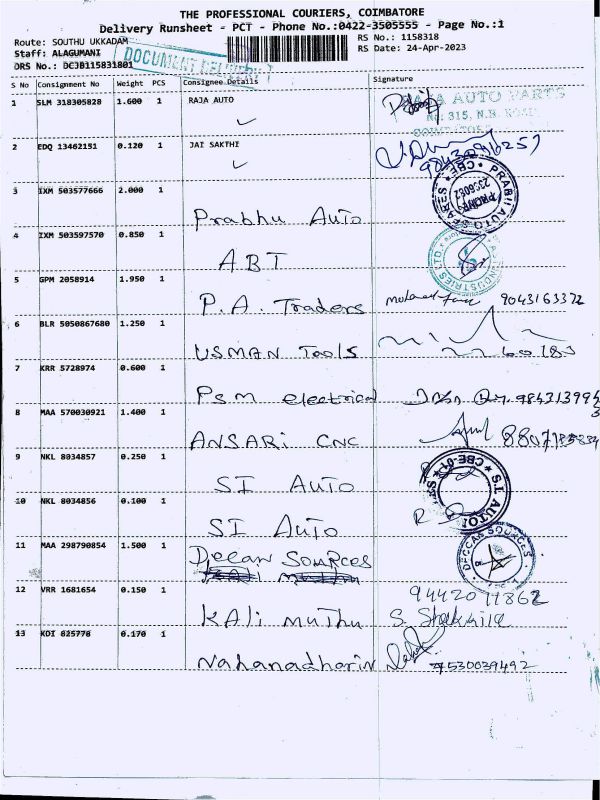 THE PROFESSIONAL COURIERS, COIMBATORE
Delivery Runsheet - PCT - Phone No.:0422-3505555 - Page No.:1
Route: SOUTHU UKKADAM
RS No.: 1158318
Staff: ALAGUMANI
RS Date: 24-Apr-2023
DRS No.: DCJB115831801
DOCUMENT
S No Consignment No Weight PCS Consignee Details Signature
1 SLM 318305828 1.600 1 RAJA AUTO
RAJA AUTO PARTS
No: 315, N.H. ROAD
2 EDQ 13462151 0.120 1 JAI SAKTHI
3 IXM 503577666 2.000 1 Prabhu Auto
4 IXM 503597570 0.850 1 ABT
5 GPM 2058914 1.950 1 P.A. Traders 9043163372
6 BLR 5050867680 1.250 1 USMAN Tools
7 KRR 5728974 0.600 1 PSM electrical
8 MAA 570030921 1.400 1 ANSARI CNC
9 NKL 8034857 0.250 1 SI Auto
10 NKL 8034856 0.100 1 SI Auto
11 MAA 298790854 1.500 1 Deccan Sources
DECCAN SOURCES
12 VRR 1681654 0.150 1 Kali muthu 9442011862
13 KOI 825778 0.170 1 7530039492